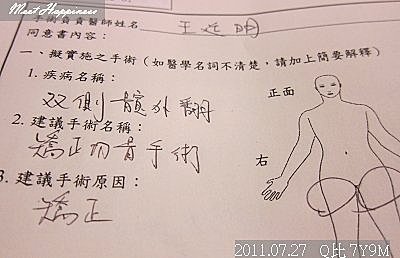 Meet Happiness
手術負責醫師姓名
同意書內容：
一、擬實施之手術（如醫學名詞不清楚，請加上簡要解釋）
1. 疾病名稱：
双側髖外翻
正面
2. 建議手術名稱：
矯正切骨手術
右
3. 建議手術原因：
矯正
2011.07.27 Q比7Y9M